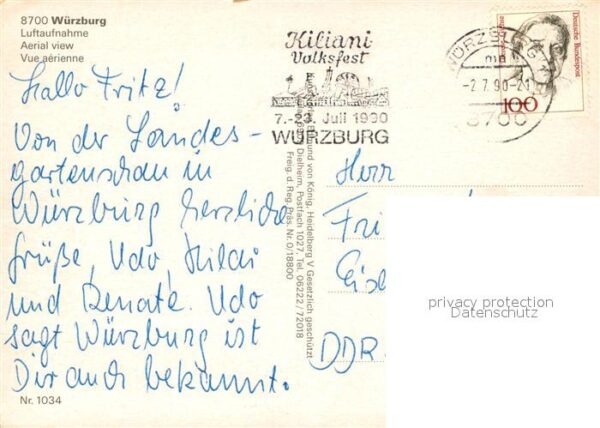 8700 Würzburg
Luftaufnahme
Aerial view
Vue aérienne
Hallo Fritz!
Von der Landes-
gartenschau in
Würzburg herzliche
Grüße, Udo,
und Renate. Udo
sagt Würzburg ist
Dir auch bekannt.
Nr. 1034
Kiliani
Volksfest
7.-23. Juli 1990
WÜRZBURG
WÜRZBURG 1
-2.7.90-21
8700
Deutsche Bundespost
100
und von König, Heidelberg V Gesetzlich geschützt
Dielheim, Postfach 1027, Tel. 06222/72018
Freig. d. Reg. Präs. Nr. 0/18800
Herr
Fri
DDR
privacy protection
Datenschutz